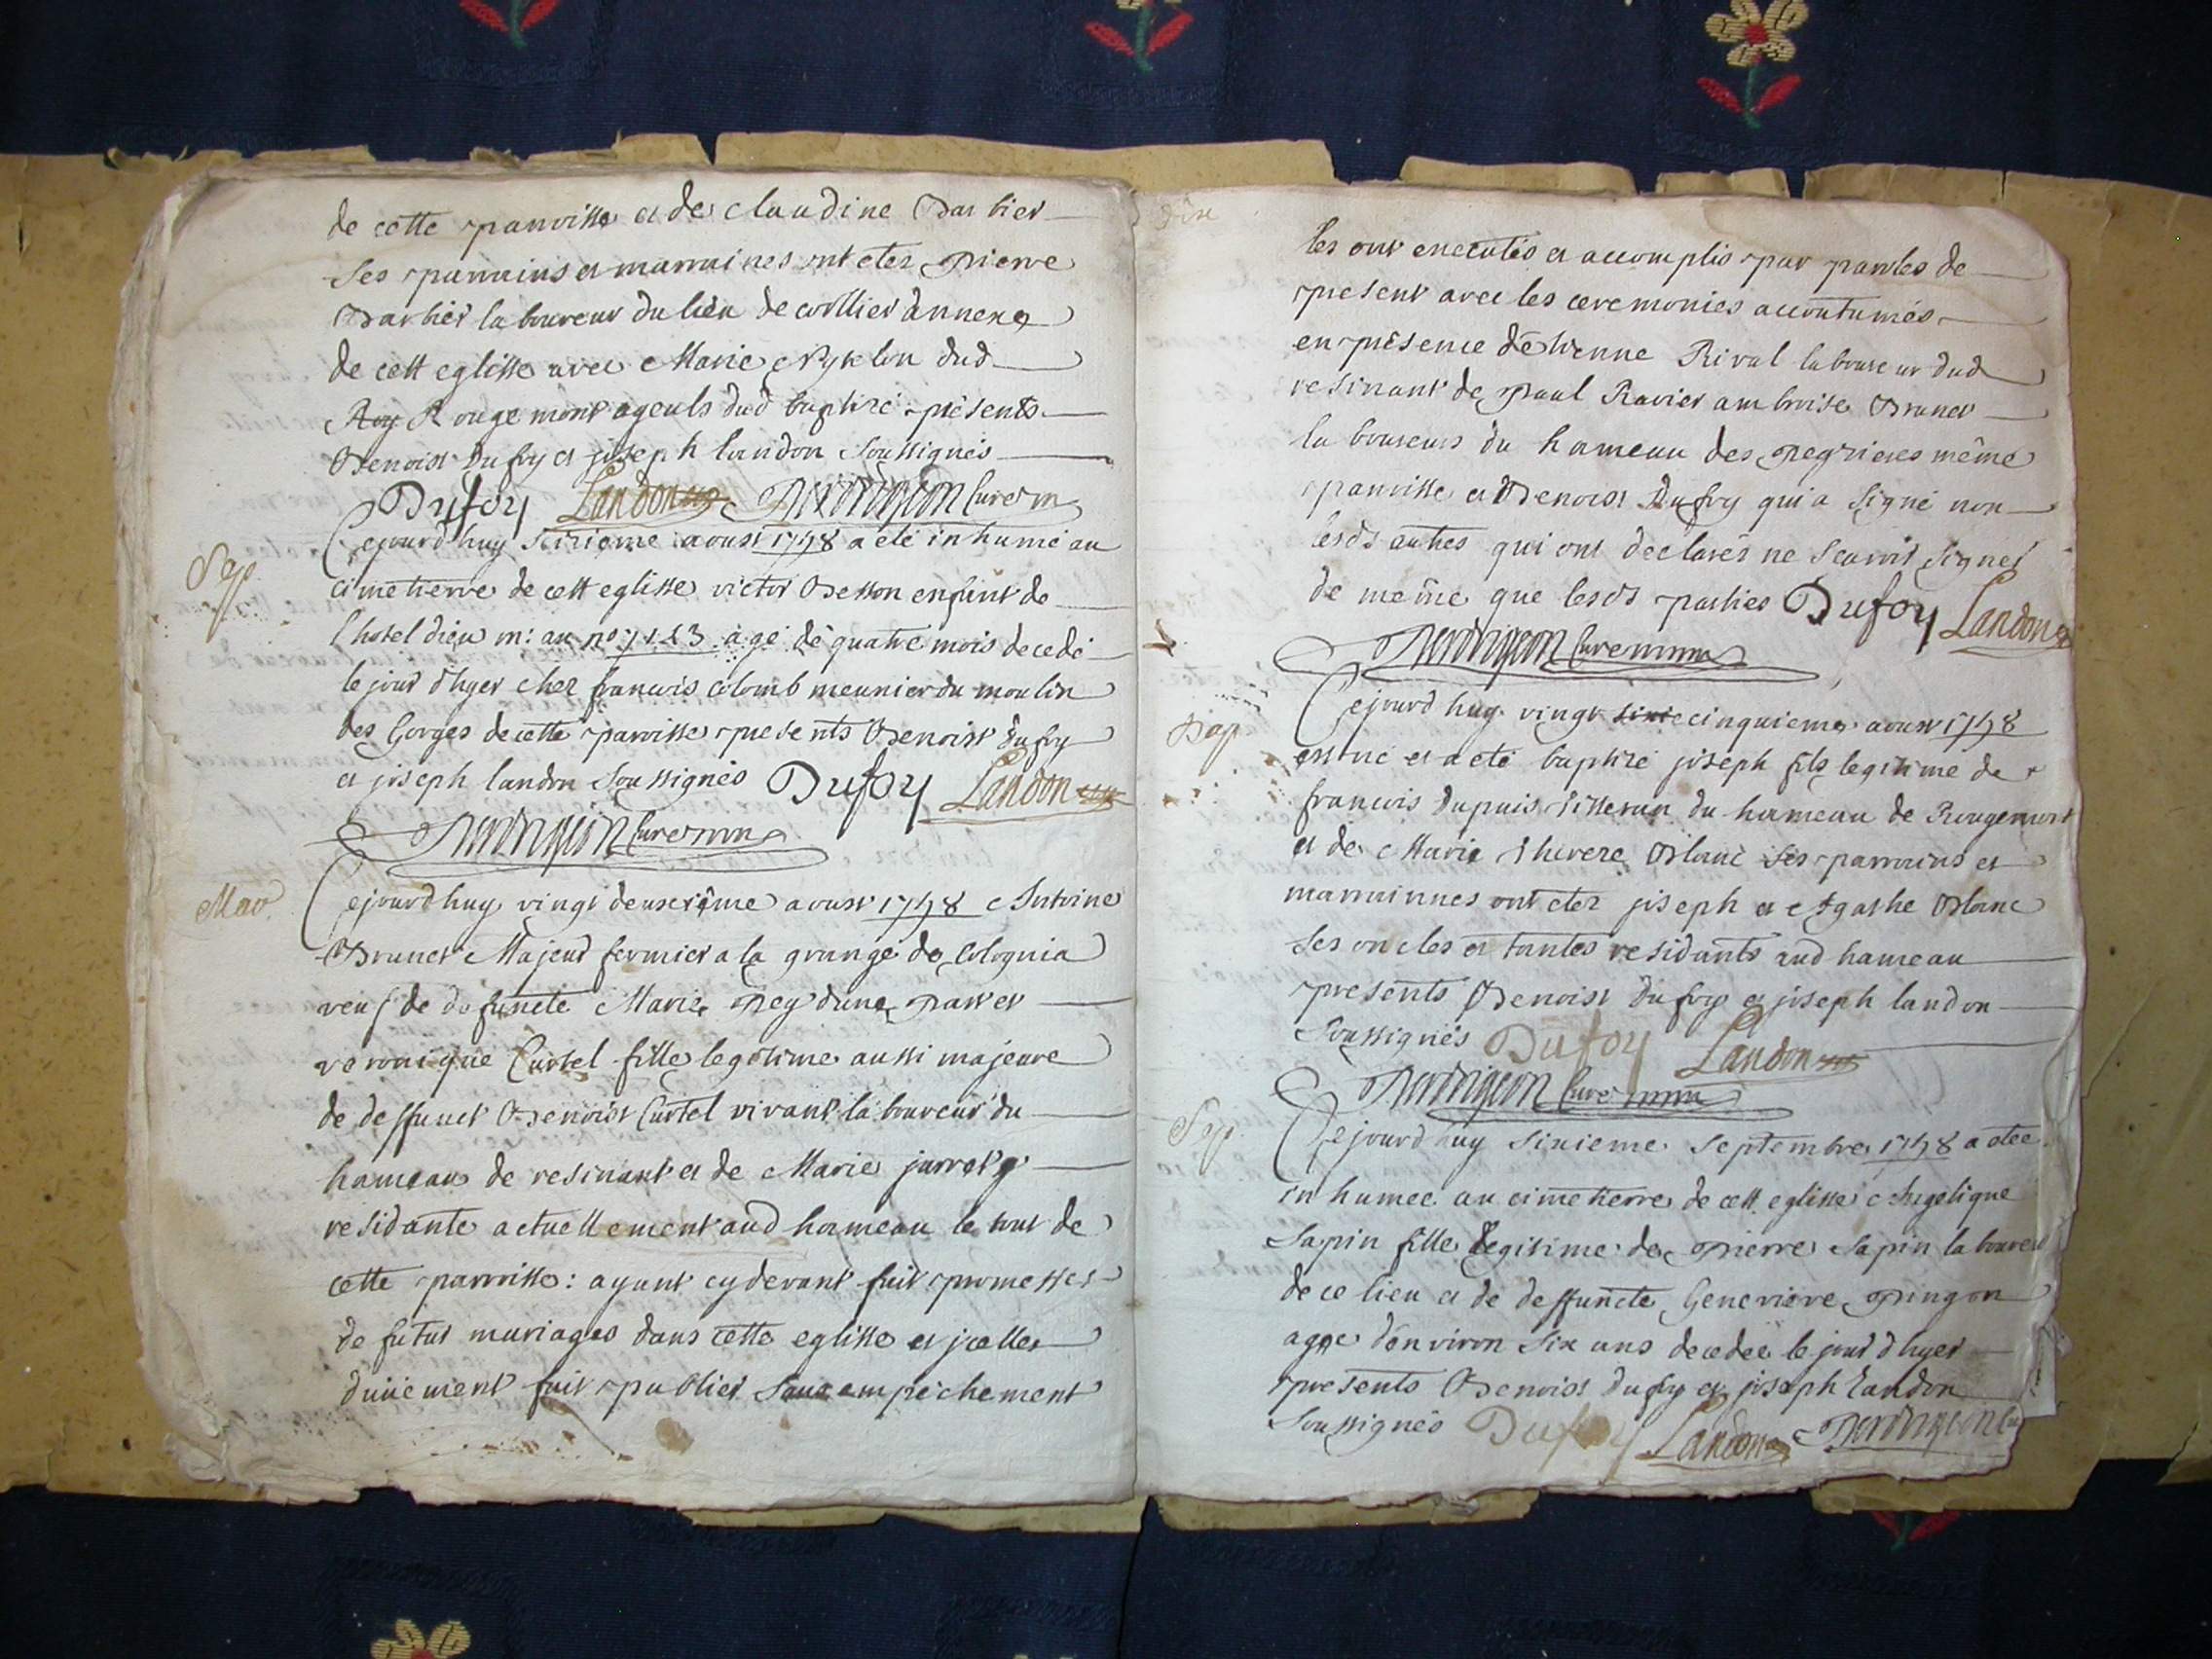 de cette parroisse et de claudine Barbier
ses parrains et marraines ont etez pierre
Barbier laboureur du lieu de corllier annexe
de cett eglisse avec Marie dud
Rougemont ayeuls dud baptizé présents
Benoist Dufoy et joseph landon soussignés
Dufoy Landon curé
Sep.
Cejourd'huy sixieme aoust 1748 a eté inhumé au
cimetierre de cett eglisse victor Besson enfant de
l'hotel dieu m: au no: agé de quatre mois decedé
le jour d'hyer chez francois colomb meunier du moulin
des Gorges de cette parroisse presents Benoist dufoy
et joseph landon soussignés Dufoy Landon
curé
Mar.
Cejourd'huy vingt deuxiême aoust 1748 Antoine
Brunet Majeur fermier a la grange de Colognia
veuf de defuncte Marie pey d'une part et
veronique Curtel fille legitime aussi majeure
de deffunct Benoist Curtel vivant laboureur du
hameau de resinant et de Marie
residante actuellement aud hameau le tout de
cette parroisse: ayant cydevant fait promesses
de futur mariages dans cette eglisse et jcelles
duüement fait publier sans empéchement
les ont executés et accomplis par paroles de
present avec les ceremonies accoutumés
en présence d'Etienne Rival laboureur dud
resinant de paul Ravier ambroise Brunet
laboureurs du hameau des pezieres même
parroisse et Benoist Dufoy qui a signé non
lesds autres qui ont declarés ne scavoir signer
de même que lesds parties Dufoy Landon
curé
Bap
Cejourd'huy vingt cinquieme aoust 1748
est né et a eté baptizé joseph fils legitime de
francois dupuis tisseran du hameau de Rougemont
et de Marie Therere Blanc ses parrains et
marrainnes ont etez joseph et Agathe Blanc
ses oncles et tantes residants aud hameau
presents Benoist dufoy et joseph landon
soussignés Dufoy Landon
curé
Sep.
Cejourd'huy sixieme septembre 1748 a etee
inhumee au cimetierre de cett eglisse Angelique
Sapin fille legitime de pierre Sapin laboureur
de ce lieu et de deffuncte Genevieve pingon
agee d'environ six ans decedee le jour d'hyer
presents Benoist dufoy et joseph Landon
soussignés Dufoy Landon